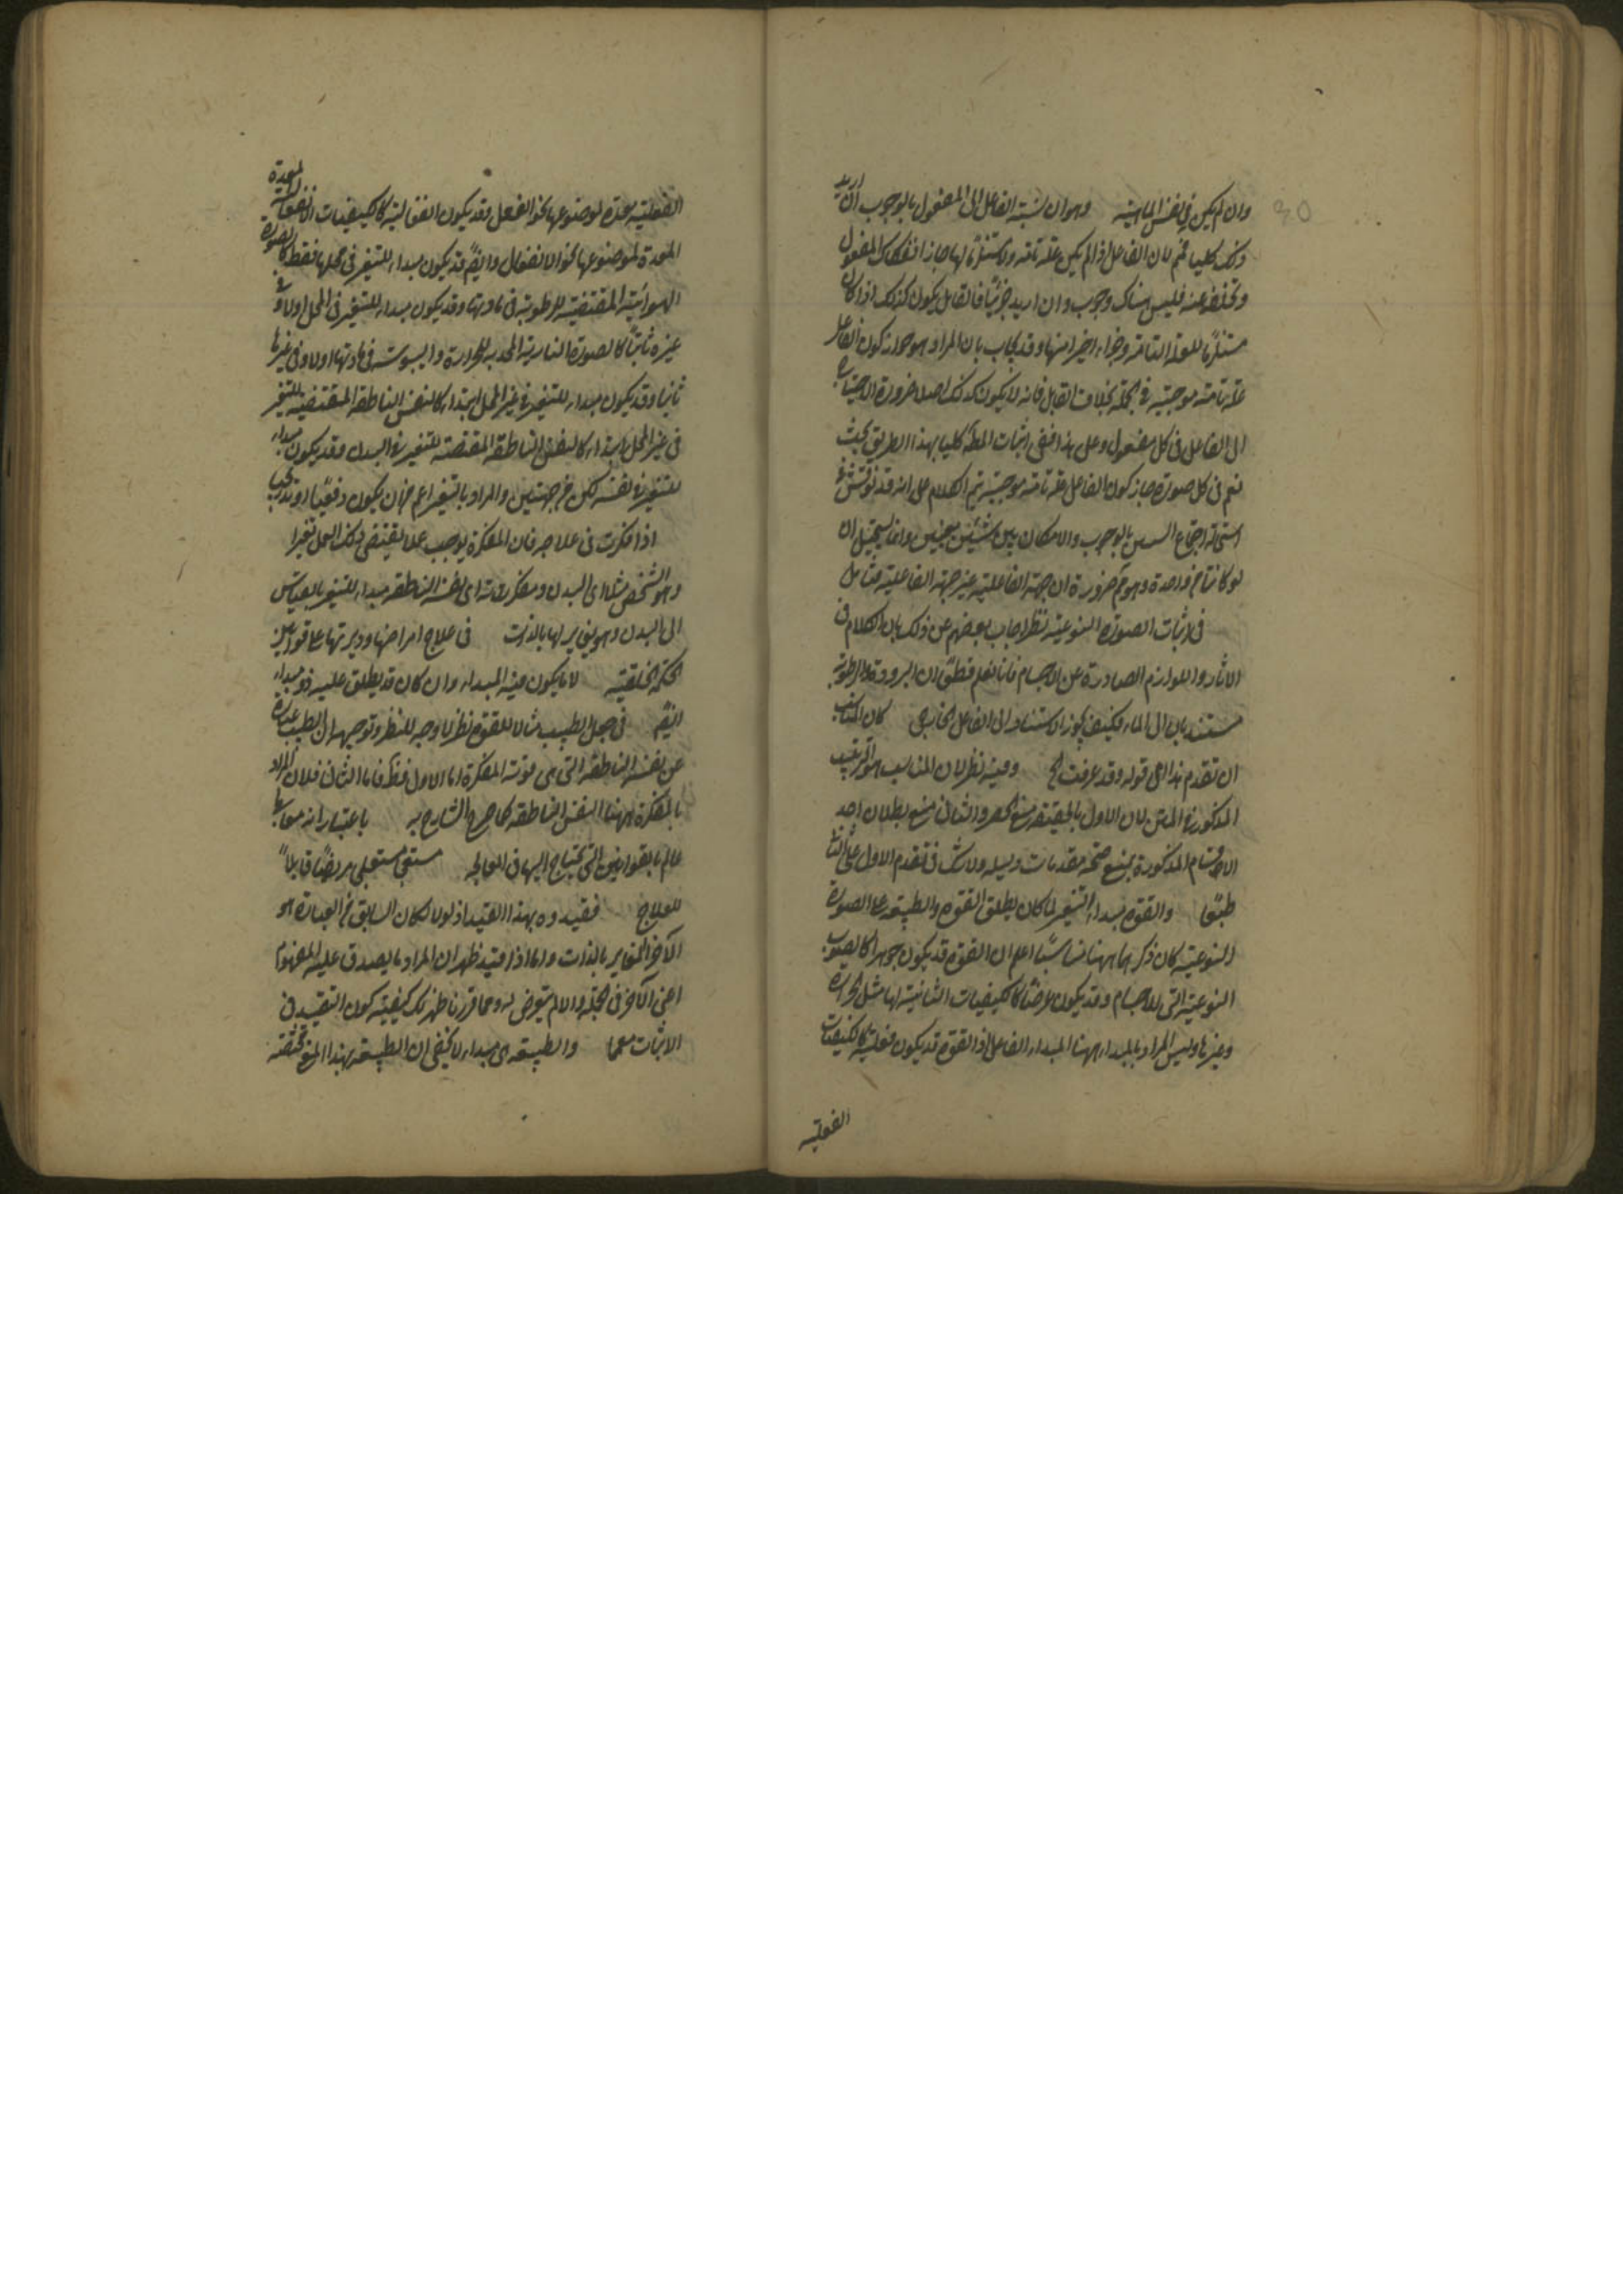 وان لم يكن في نفس الماهية وهو ان نسبة الفاعل الى المفعول بالوجوب ان اريد
ذلك كليا فمم لان الفاعل اذا لم يكن علة تامة ولا مستلزما لها جاز انفكاك المفعول
وتخلفه عنه فليس هناك وجوب وان اريد جزئيا فالقابل يكون كذلك اذا كان
مستلزما للعلة التامة وجزاء اخيرا منها وقد يجاب بان المراد هو جواز كون الفاعل
علة تامة موجبة في الجملة بخلاف القابل فانه لا يكون كذلك اصلا ضرورة الاحتياج
الى الفاعل في كل مفعول وعلى هذا ففي اثبات المط كليا بهذا الطريق بحث
نعم في كل صورة جاز كون الفاعل علة تامة موجبة يتم الكلام على انه قد نوقش في
استحالة اجتماع بالوجوب والامكان بين شيئين وانما يستحيل ان
لو كانتا من واحدة وهو مم ضرورة ان جهة الفاعلية غير جهة القابلية فتامل
في اثبات الصورة النوعية نظر اجاب بعضهم عن ذلك بان الكلام في
الآثار واللوازم الصادرة عن الاجسام فانا نعلم قطعا ان البرودة والرطوبة
مستندتان الى الماء فكيف يجوز استناد الى الفاعل الخارجي كان المناسب
ان تقدم هذا على قوله وقد عرفت الخ وفيه نظر لان المناسب هو الترتيب
المذكور في المتن لان الاول بالحقيقة منع الحصر والثاني منع بطلان احد
الاقسام المذكورة بمنع صحة مقدمات دليله ولا شك في تقدم الاول على الثاني
طبعا والقوة مبداء التغير لما كان يطلق القوة والطبيعة على الصورة
النوعية كان ذكرهما ههنا مناسبا اعلم ان القوة قد يكون جوهرا كالصورة
النوعية التي للاجسام وقد يكون عرضا كالكيفيات الثانية لها مثل الحرارة
وغيرها وليس المراد بالمبداء ههنا المبداء الفاعل اذ القوة قد يكون فعلية كالكيفيات
الفعلية
الفعلية المعدة لموضوعها نحو الفعل وقد يكون انفعالية كالكيفيات الانفعالية
المعدة لموضوعها نحو الانفعال وايضا قد يكون مبداء للتغير في محلها فقط كالصورة
الهوائية المقتضية للرطوبة في مادتها وقد يكون مبداء للتغير في المحل اولا وفي
غيره ثانيا كالصورة النارية المحدثة للحرارة واليبوسة في مادتها اولا وفي غيرها
ثانيا وقد يكون مبداء للتغير في غير المحل ابتداء كالنفس الناطقة المقتضية للتغير
في غير المحل ابتداء كالنفس الناطقة المقتضية للتغير في البدن وقد يكون مبداء
للتغير في نفسه لكن من جهتين والمراد بالتغير اعم من ان يكون دفعيا او تدريجيا
اذا فكرت في علاجه فان المفكرة يوجب عملا يقتضي ذلك العمل تغيرا
وهو الشخص مثلا اي البدن ومفكرته اي نفسه الناطقة مبداء للتغير بالقياس
الى البدن وهو يغاير لها بالذات في علاج امراضها ودبرتها على قوانين
الحكمة الخلقية لا ما يكون فيه المبداء وان كان قد يطلق عليه ذو مبداء
ايضا في جعل الطبيب مثالا للقوة نظر لا وجه للنظر وتوجيهه ان الطبيب عبارة
عن نفسه الناطقة التي هي قوته المفكرة اما الاول فظ واما الثاني فلان المراد
بالمفكرة ههنا النفس الناطقة كما صرح الشارح به باعتبار انه معالج
عالم بالقوانين التي يحتاج اليها في المعالجة مستعلج مريضا قابلا
للعلاج فقيدوه بهذا القيد اذ لولا لكان السابق من العبارة هو
الآخر المغاير بالذات واما اذا قيد ظهر ان المراد ما يصدق عليه المفهوم
اعني الآخر في الجملة والا لم يتعرض له ومما قررنا ظهر لك كيفية كون التقييد في
الاثبات معمما والطبيعة هي مبداء لا يخفى ان الطبيعة بهذا المعنى مختصة